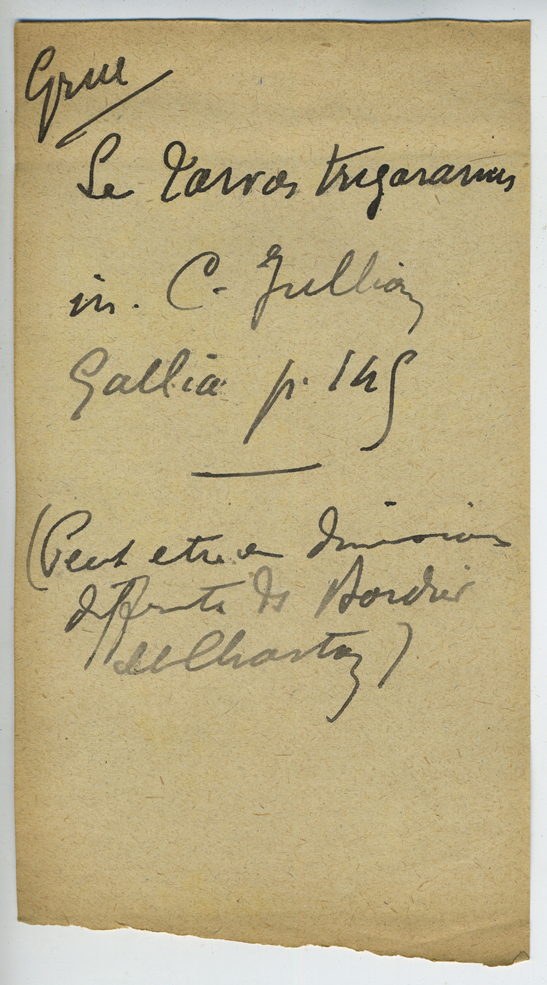 Grue
Le Tarvos trigaranus
in. C. Jullian
Gallia p. 145
(Peut etre en dimension
differente de Bordier
et Charton)